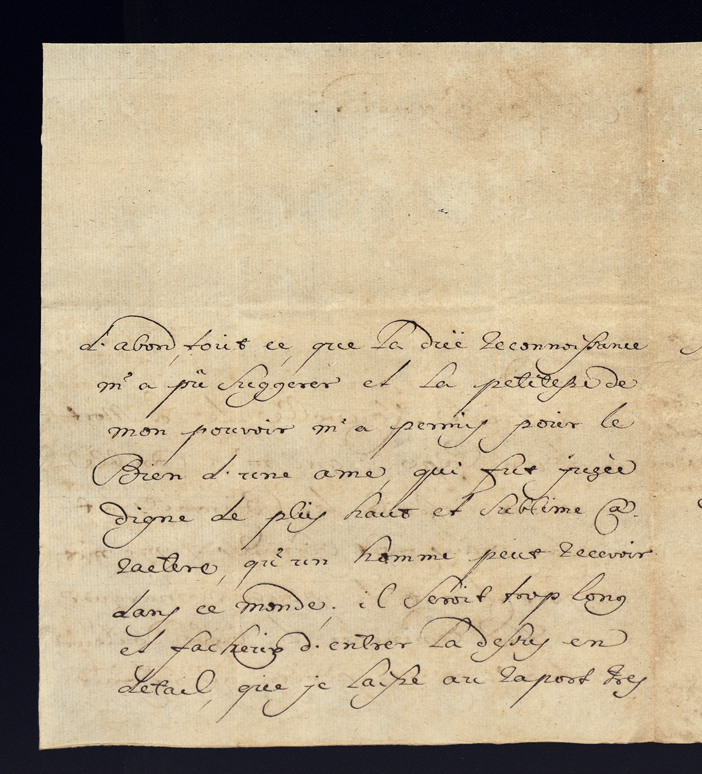 d'abord, tout ce, que la düe reconnoissance
m'a pû suggerer et la petitesse de
mon pouvoir m'a permis pour le
Bien d'une ame, qui fut jugée
digne de plus haut et sublime Ca-
ractere, qu'un homme peut recevoir
dans ce monde; il seroit trop long
et facheux d'entrer la dessus en
detail, que je laisse au raport tres